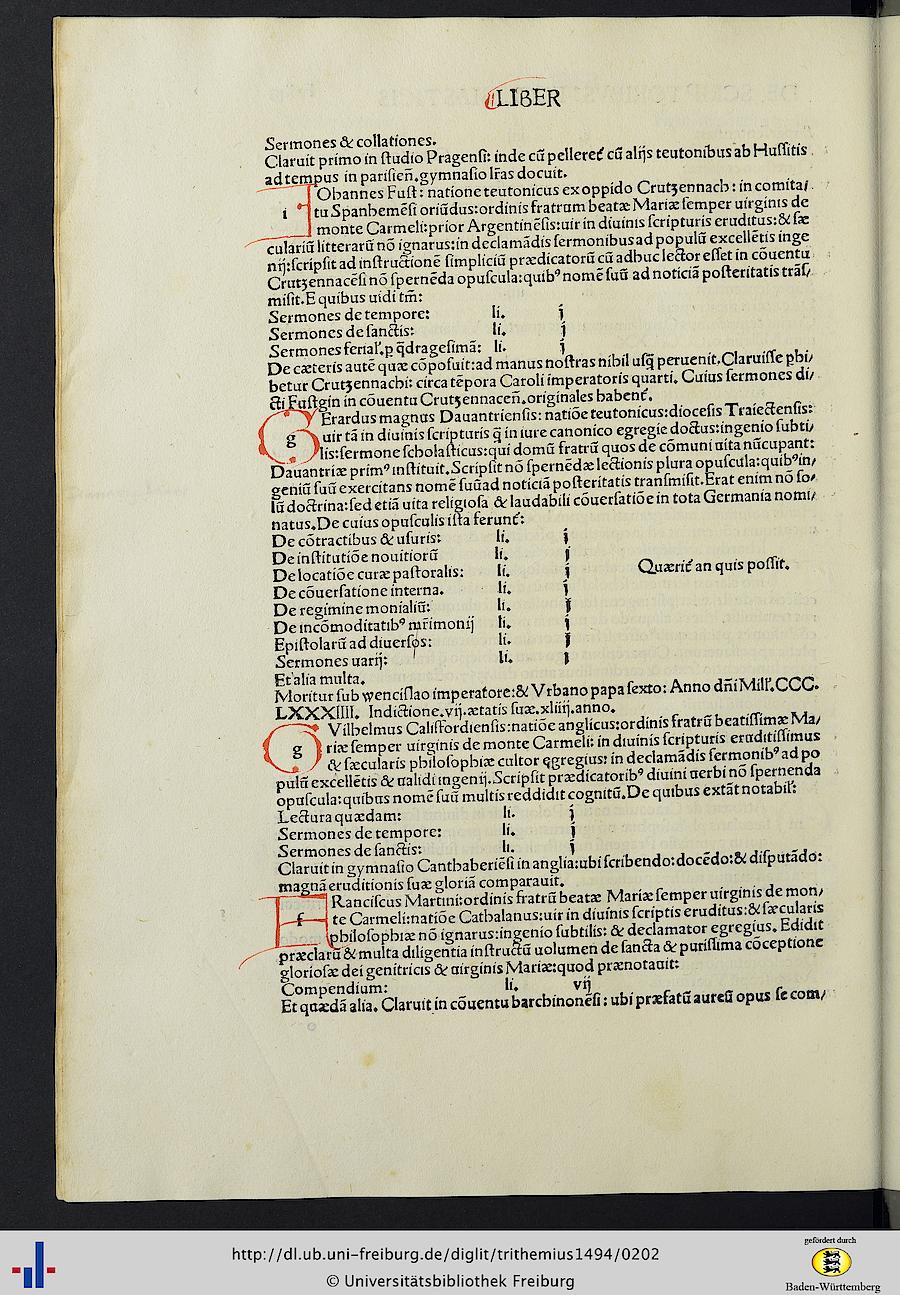 LIBER
Sermones & collationes.
Claruit primo in studio Pragensi: inde cū pelleret̄ cū alijs teutonibus ab Hussitis
ad tempus in parisieñ. gymnasio lr̄as docuit.
i Ohannes Fust: natione teutonicus ex oppido Crutzennach: in comita/
tu Spanhemēsi oriūdus: ordinis fratrum beatæ Mariæ semper uirginis de
monte Carmeli: prior Argentinēsis: uir in diuinis scripturis eruditus: & sæ
culariū litterarū nō ignarus: in declamādis sermonibus ad populū excellētis inge
nij: scripsit ad instructionē simpliciū prædicatorū cū adhuc lector esset in cōuentu
Crutzennacēsi nō spernēda opuscula: quibꝰ nomē suū ad noticiā posteritatis trāſ/
misit. E quibus uidi tm̄:
Sermones de tempore: li. j
Sermones de sanctis: li. j
Sermones ferial'. ꝑ q̄dragesimā: li. j
De cæteris autē quæ cōposuit: ad manus nostras nihil usq̄ peruenit. Claruisse ꝓhi/
betur Crutzennachi: circa tēpora Caroli imperatoris quarti. Cuius sermones di/
cti Fustgin in cōuentu Crutzennaceñ. originales habent̄.
g Erardus magnus Dauantriensis: natiōe teutonicus: diocesis Traiectensis:
uir tā in diuinis scripturis q̄ in iure canonico egregie doctus: ingenio subti/
lis: sermone scholasticus: qui domū fratrū quos de cōmuni uita nūcupant:
Dauantriæ primꝰ instituit. Scripsit nō spernēdæ lectionis plura opuscula: quibꝰ in/
geniū suū exercitans nomē suū ad noticiā posteritatis transmisit. Erat enim nō so/
lū doctrina: sed etiā uita religiosa & laudabili cōuersatiōe in tota Germania nomi/
natus. De cuius opusculis ista ferunt̄:
De cōtractibus & usuris: li. j
De institutiōe nouitiorū li. j
De locatiōe curæ pastoralis: li. j Quærit̄ an quis possit.
De cōuersatione interna. li. j
De regimine monialiū: li. j
De incōmoditatibꝰ mr̄imonij li. j
Epistolarū ad diuersos: li. j
Sermones uarij: li. j
Et alia multa.
Moritur sub wencislao imperatore: & Vrbano papa sexto: Anno dñi Mill'. CCC.
LXXXIIII. Indictione. vij. ætatis suæ. xliiij. anno.
g Vilhelmus Calisfordiensis: natiōe anglicus: ordinis fratrū beatissimæ Ma/
riæ semper uirginis de monte Carmeli: in diuinis scripturis eruditissimus
& sæcularis philosophiæ cultor egregius: in declamādis sermonibꝰ ad po
pulū excellētis & ualidi ingenij. Scripsit prædicatoribꝰ diuini uerbi nō spernenda
opuscula: quibus nomē suū multis reddidit cognitū. De quibus extāt notabil':
Lectura quædam: li. j
Sermones de tempore: li. j
Sermones de sanctis: li. j
Claruit in gymnasio Canthaberiēsi in anglia: ubi scribendo: docēdo: & disputādo:
magnā eruditionis suæ gloriā comparauit.
f Ranciscus Martini: ordinis fratrū beatæ Mariæ semper uirginis de mon/
te Carmeli: natiōe Cathalanus: uir in diuinis scriptis eruditus: & sæcularis
philosophiæ nō ignarus: ingenio subtilis: & declamator egregius. Edidit
præclarū & multa diligentia instructū uolumen de sancta & purissima cōceptione
gloriosæ dei genitricis & uirginis Mariæ: quod prænotauit:
Compendium: li. vij
Et quædā alia. Claruit in cōuentu barchinonēsi: ubi præfatū aureū opus se com/
http://dl.ub.uni-freiburg.de/diglit/trithemius1494/0202
© Universitätsbibliothek Freiburg
gefördert durch
Baden-Württemberg